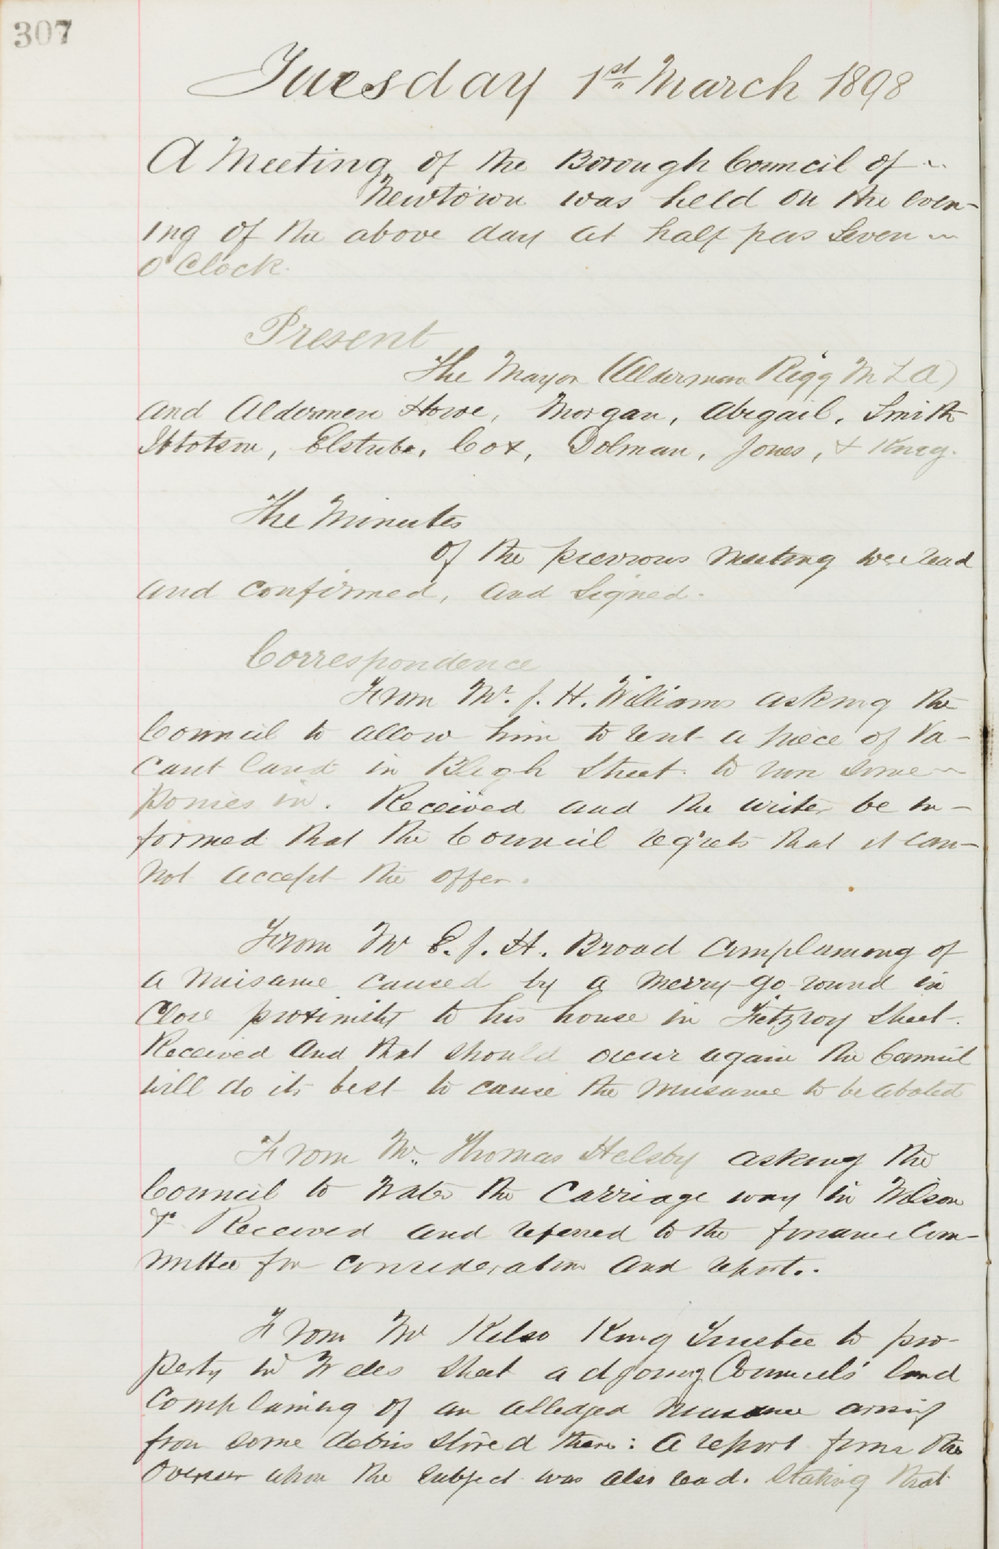 307
Tuesday 1st March 1898
A Meeting of the Borough Council of
Newtown was held on the even-
ing of the above day at half pas Seven
O'Clock.
Present
The Mayor (Alderman Rigg M L A)
and Aldermen Howe, Morgan, Abigail, Smith
Ibbotson, Elstub, Cox, Dolman, Jones, & King.
The Minutes
of the previous meeting were read
and confirmed, and Signed.
Correspondence
From Mr. J. H. Williams asking the
Council to allow him to rent a piece of Va-
cant land in Bligh Street to run some
ponies in. Received and the writer be in-
formed that the Council regrets that it can-
not accept the offer.
From Mr E. J. H. Broad complaining of
a nuisance caused by a merry-go-round in
close proximity to his house in Fitzroy Street.
Received and that should occur again the Council
will do its best to cause the nuisance to be abated
From Mr. Thomas Helsby asking the
Council to Water the Carriage way in Wilson
St Received and referred to the Finance Com-
mittee for consideration and report.
From Mr Kelso King Trustee to pro-
perty in Wells Street adjoing Councils' land
complaining of an alledged nuisance arisig
from some debris stored there: A report from the
Overseer upon the subject was also read. Stating that